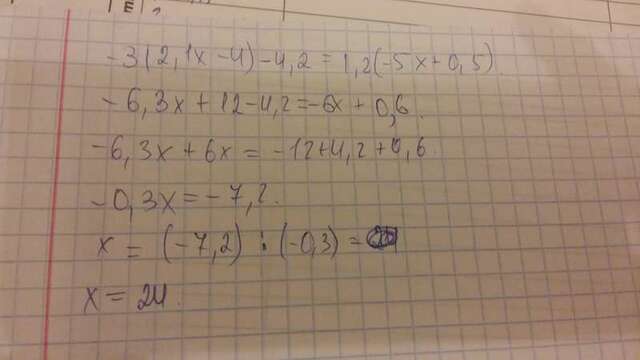 -3(2,1x-4)-4,2=1,2(-5x+0,5).
-6,3x+12-4,2=-6x+0,6.
-6,3x+6x=-12+4,2+0,6.
-0,3x=-7,2.
x=(-7,2):(-0,3)=
x=24.